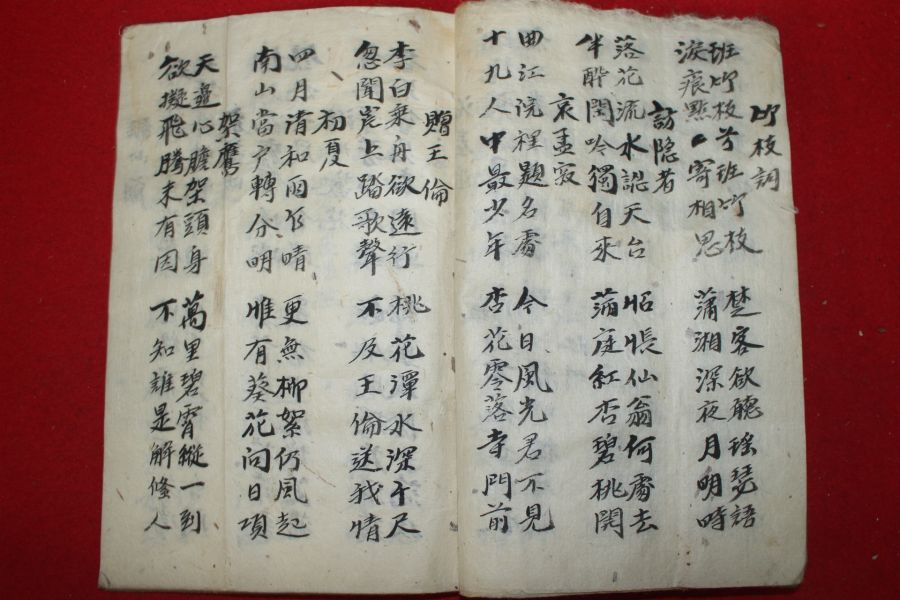 竹枝詞
班竹枝兮班竹枝
淚痕點〻寄相思
楚客欲聽瑤瑟語
蒲湘深夜月明時
訪隐者
落花流水認天台
半醉閑吟獨自來
惆悵仙翁何處去
滿庭紅杏碧桃開
哀孟寂
曲江院裡題名處
十九人中最少年
今日風光君不見
杏花零落寺門前
贈王倫
李白乗舟欲遠行
忽聞岸上踏歌聲
桃花潭水深千尺
不及王倫送我情
初夏
四月清和雨乍晴
南山當户轉分明
更無柳絮仍風起
惟有葵花向日項
架鷹
天邊心膽架頭身
欲擬飛騰未有因
萬里碧霄縱一到
不知誰是解絛人